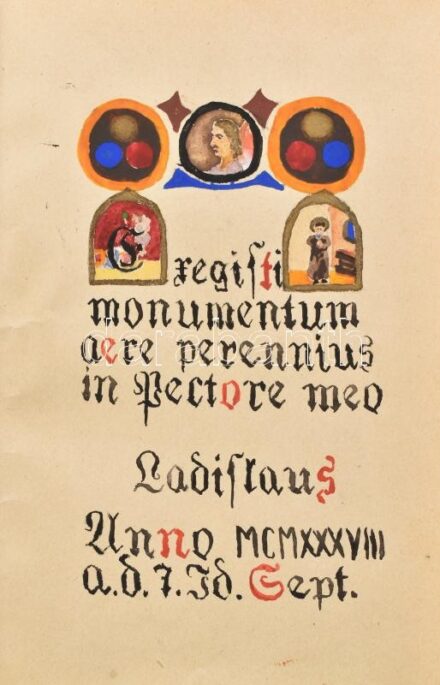 Exegisti
monumentum
aere perennius
in Pectore meo
Ladislaus
Anno MCMXXXVIII
a.d. 7. Id. Sept.